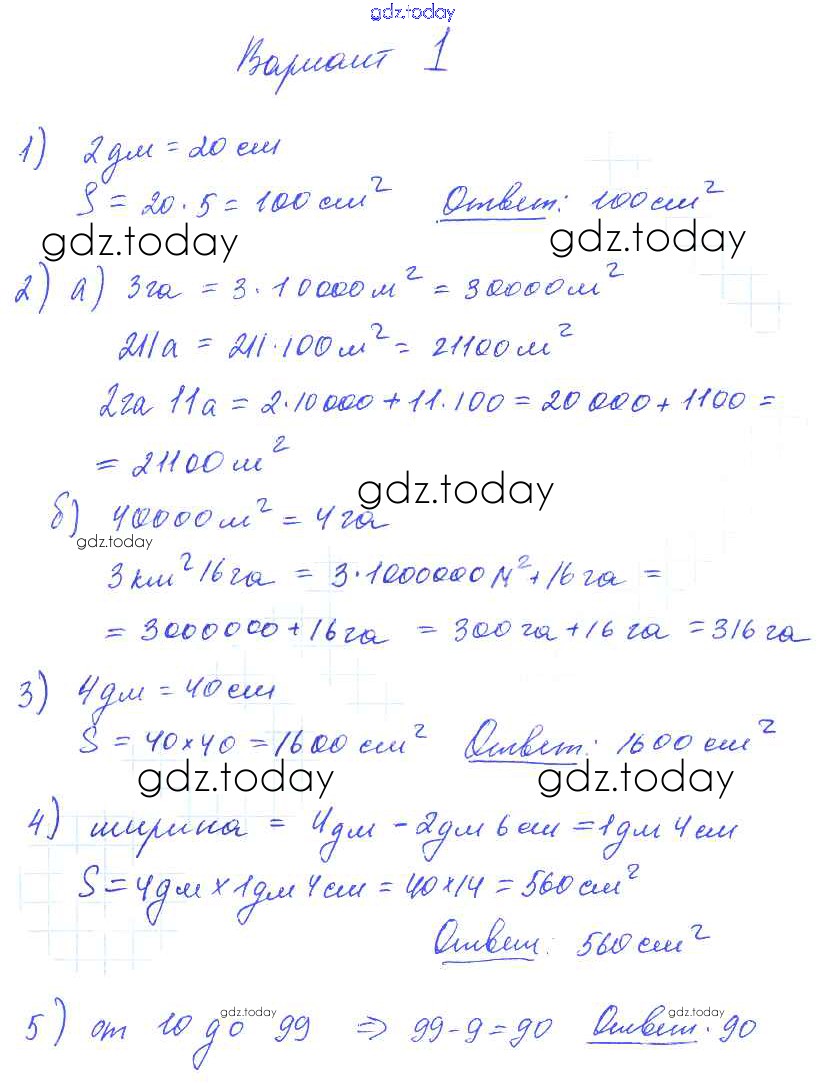 gdz.today
Вариант 1
1) 2дм = 20 см
S = 20 · 5 = 100 см² Ответ: 100 см²
gdz.today gdz.today
2) а) 3га = 3 · 10000м² = 30000м²
211а = 211 · 100м² = 21100м²
2га 11а = 2·10000 + 11·100 = 20000 + 1100 =
= 21100м²
gdz.today
б) 40000м² = 4га
gdz.today
3км² 16га = 3·1000000м² + 16га =
= 3000000 + 16га = 300га + 16га = 316га
3) 4дм = 40см
S = 40×40 = 1600 см² Ответ: 1600 см²
gdz.today gdz.today
4) ширина = 4дм - 2дм 6см = 1дм 4см
S = 4дм × 1дм 4см = 40×14 = 560 см²
Ответ: 560 см²
gdz.today gdz.today
5) от 10 до 99 ⇒ 99-9=90 Ответ: 90